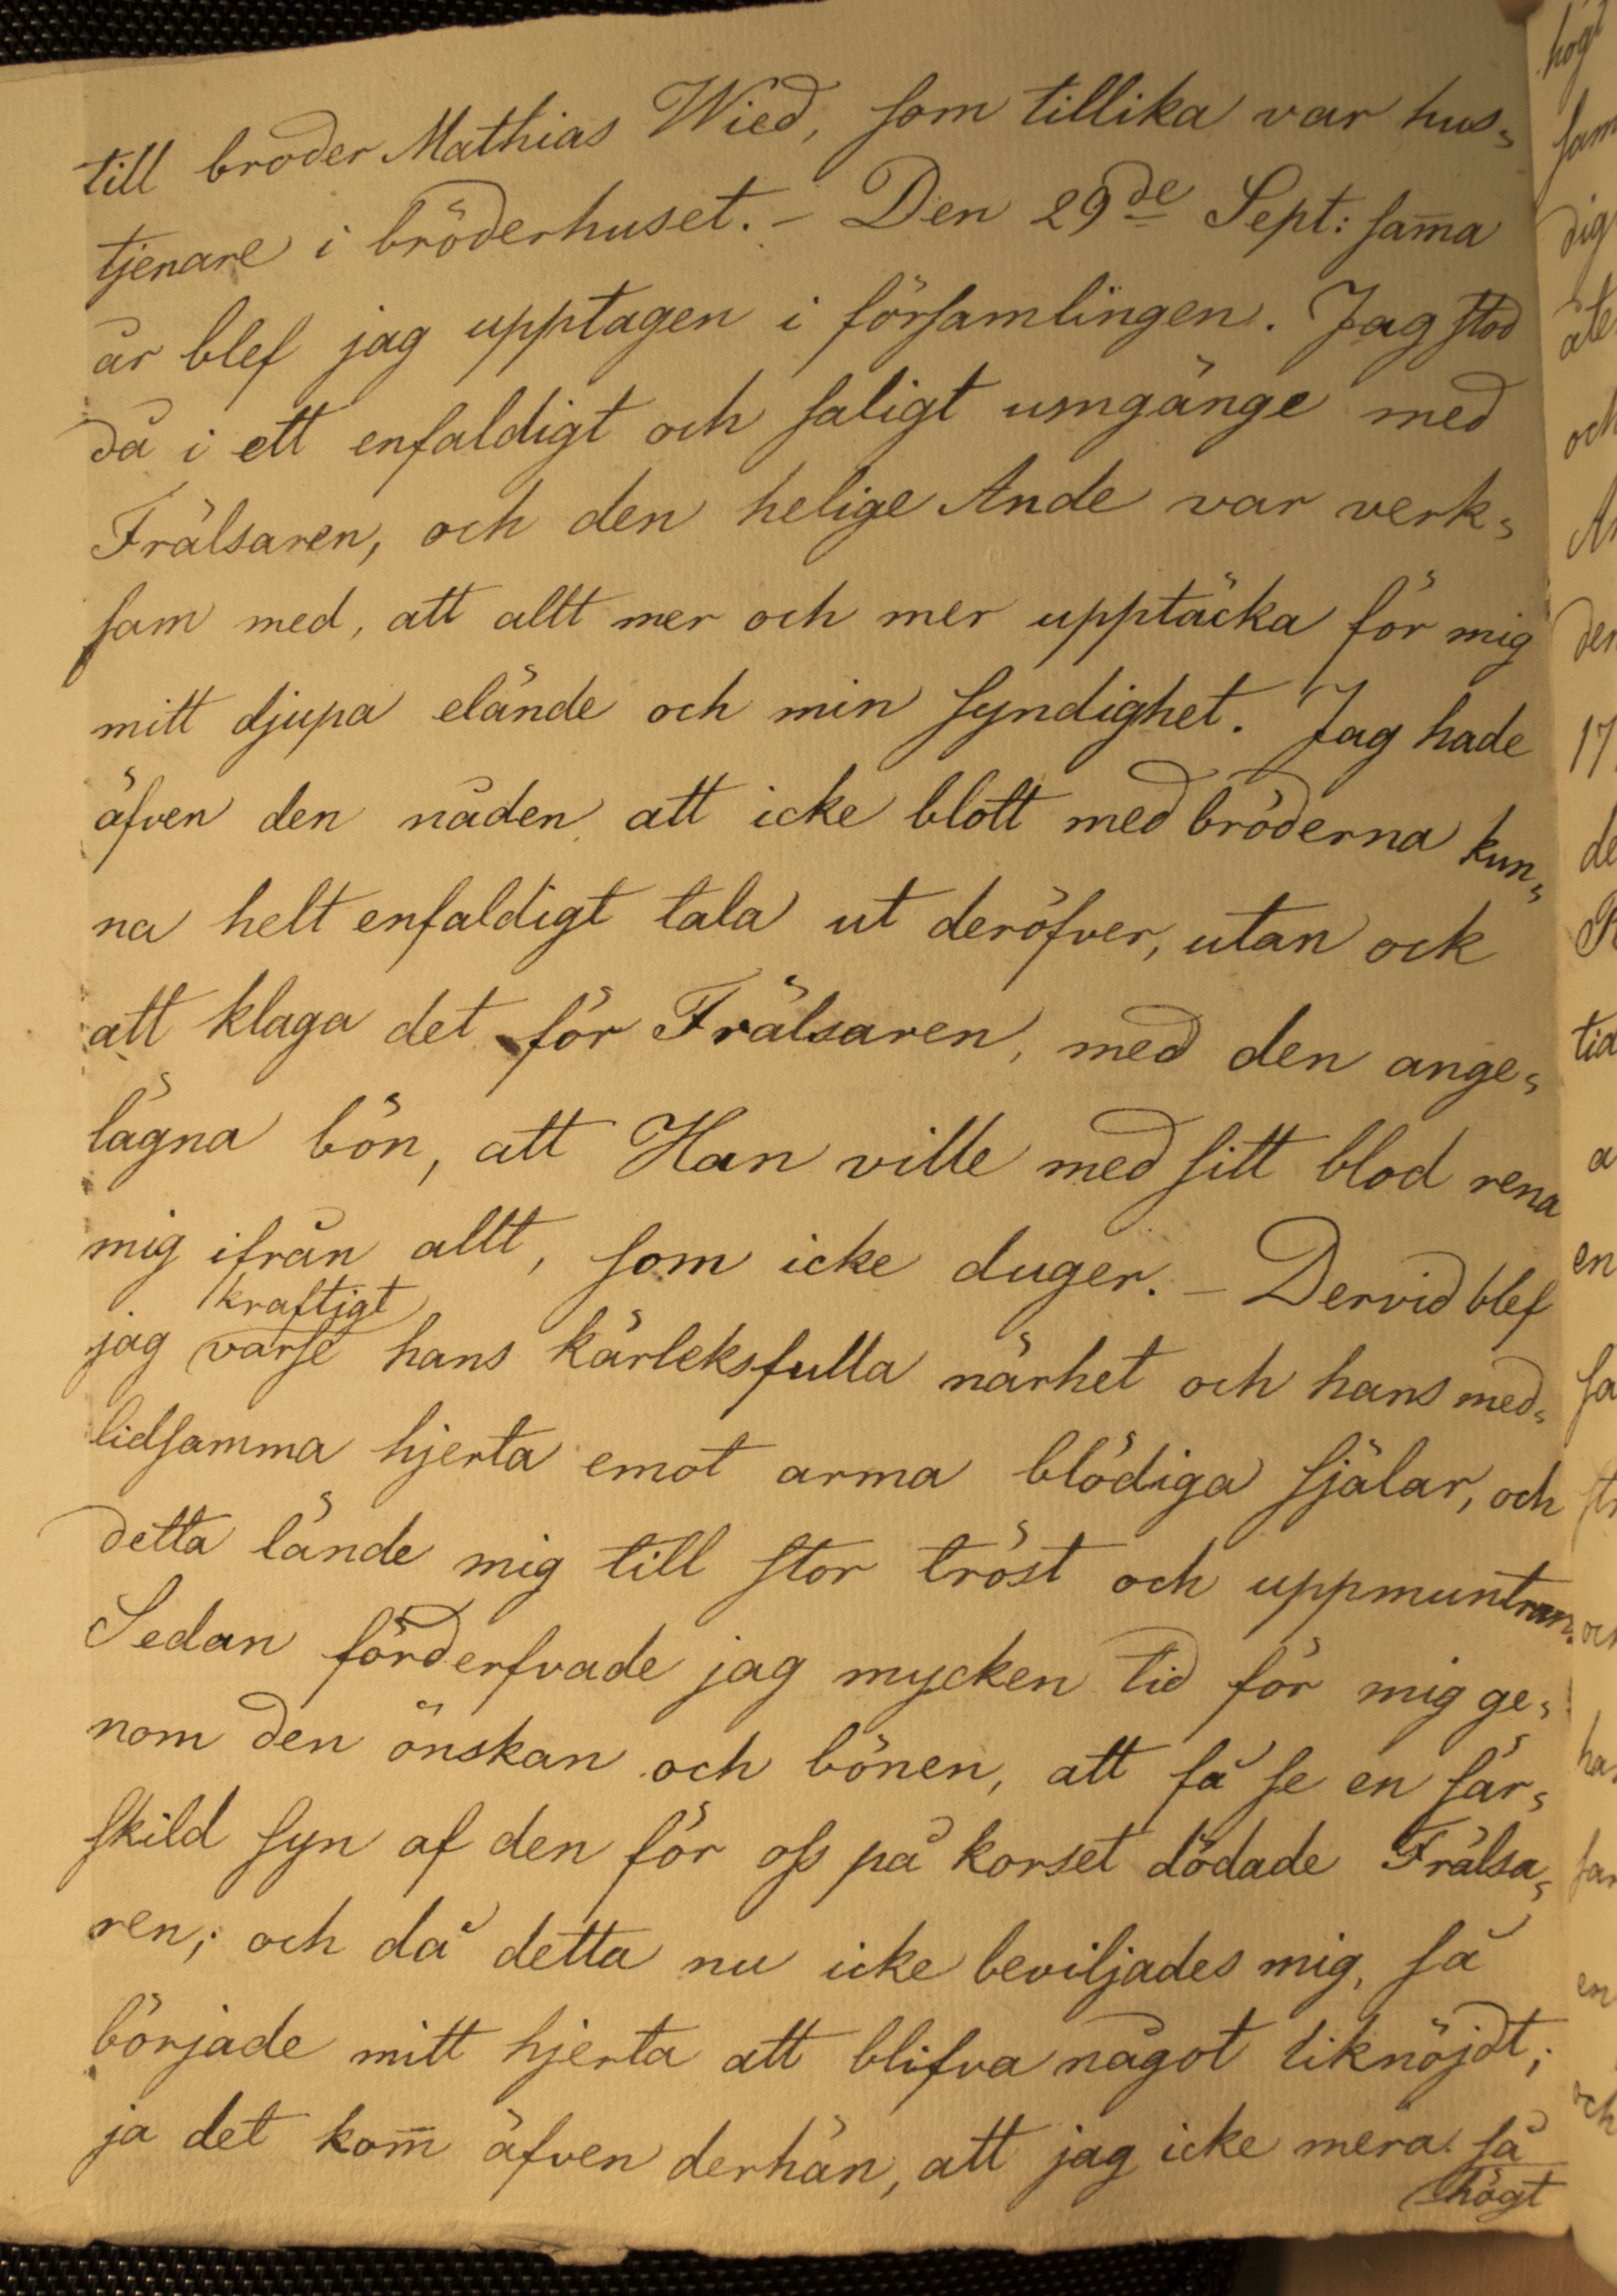 till broder Mathias Wied, som tillika var hus-
tjenare i bröderhuset. – Den 29de Sept: sam̄a
år blef jag upptagen i församlingen. Jag stod
då i ett enfaldigt och saligt umgänge med
Frälsaren, och den helige Ande var verk-
sam med, att allt mer och mer upptäcka för mig
mitt djupa elände och min syndighet. Jag hade
äfven den nåden att icke blott med bröderna kun-
na helt enfaldigt tala ut deröfver, utan ock
att klaga det för Frälsaren, med den ange-
lägna bön, att Han ville med sitt blod rena
mig ifrån allt, som icke duger. – Dervid blef
kraftigt
jag varse hans kärleksfulla närhet och hans med-
lidsamma hjerta emot arma blödiga själar, och
detta lände mig till stor tröst och uppmuntran.
Sedan förderfvade jag mycken tid för mig ge-
nom den önskan och bönen, att få se en sär-
skild syn af den för oss på korset dödade Frälsa-
ren; och då detta nu icke beviljades mig, så
började mitt hjerta att blifva något liknöjdt;
ja det kom̄ äfven derhän, att jag icke mera så
högt
högt
sam
dig
åte
och
den
17
de
tid
a
en
sa
ha
en
och